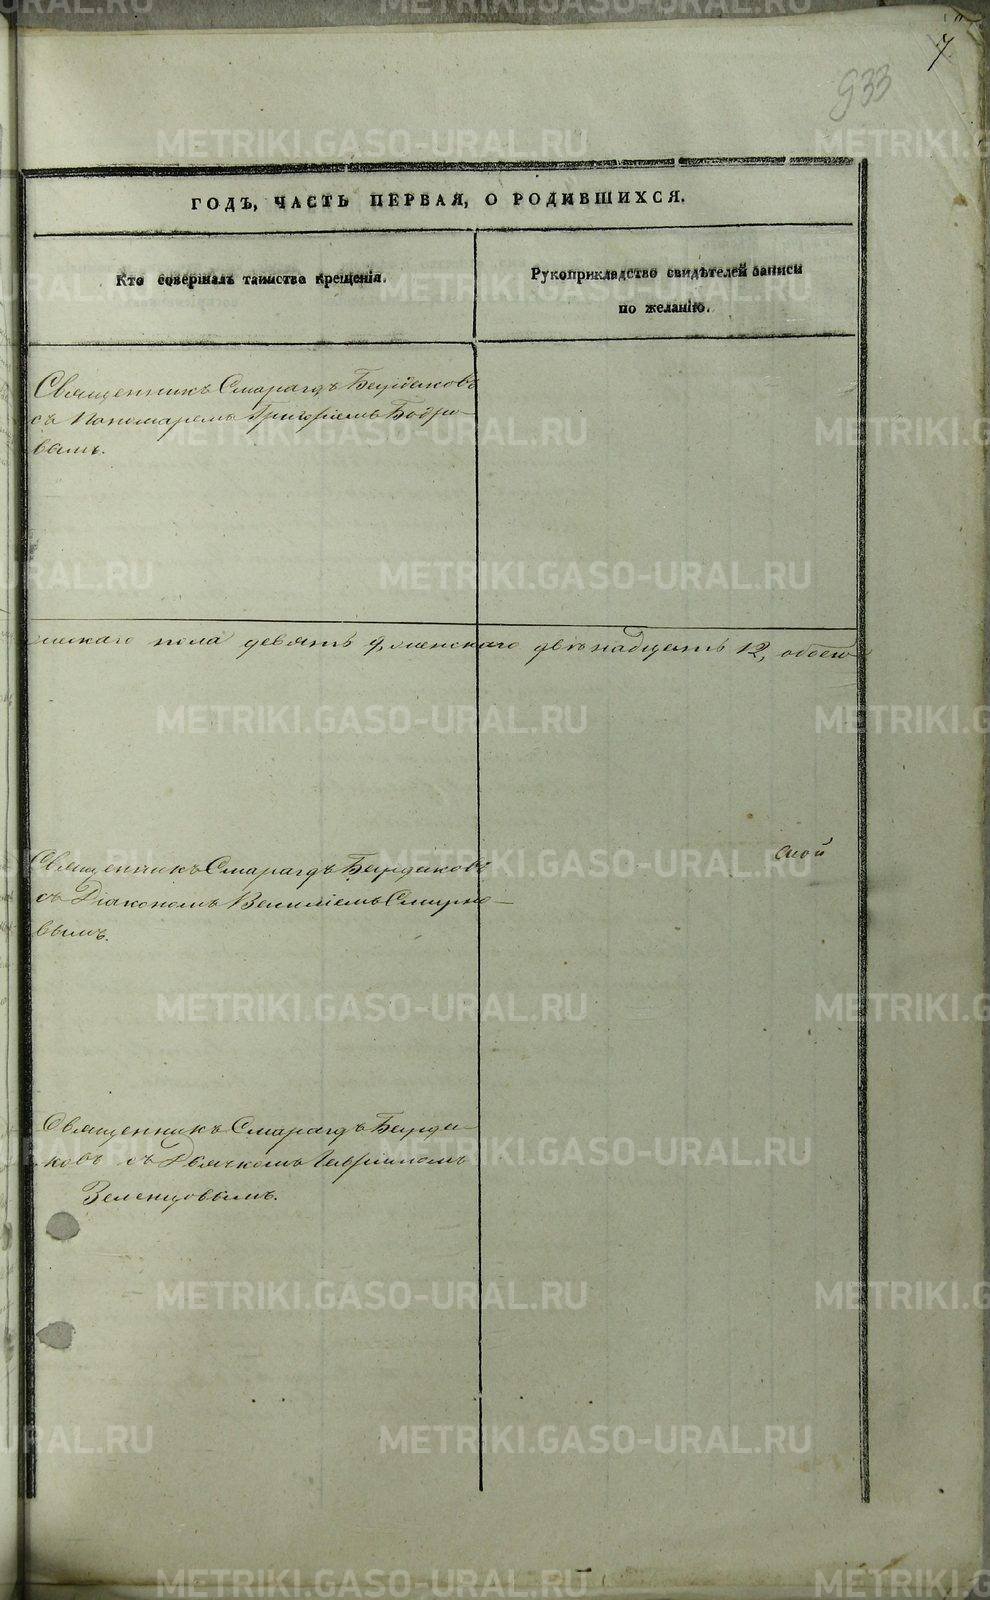 7
933
ГОДЪ, ЧАСТЬ ПЕРВАЯ, О РОДИВШИХСЯ.
Кто совершалъ таинство крещенія.
Рукоприкладство свидѣтелей записи
по желанію.
Священникъ Смарагдъ Бурдаковъ
съ Пономаремъ Григоріемъ Бобро-
вымъ.
пола девять 9, женскаго двѣнадцать 12, обоего
Священникъ Смарагдъ Бурдаковъ
съ Діакономъ Смирно-
вымъ.
Священникъ Смарагдъ Бурда-
ковъ съ Дьячкомъ Гавріиломъ
Зеленцовымъ.
METRIKI.GASO-URAL.RU